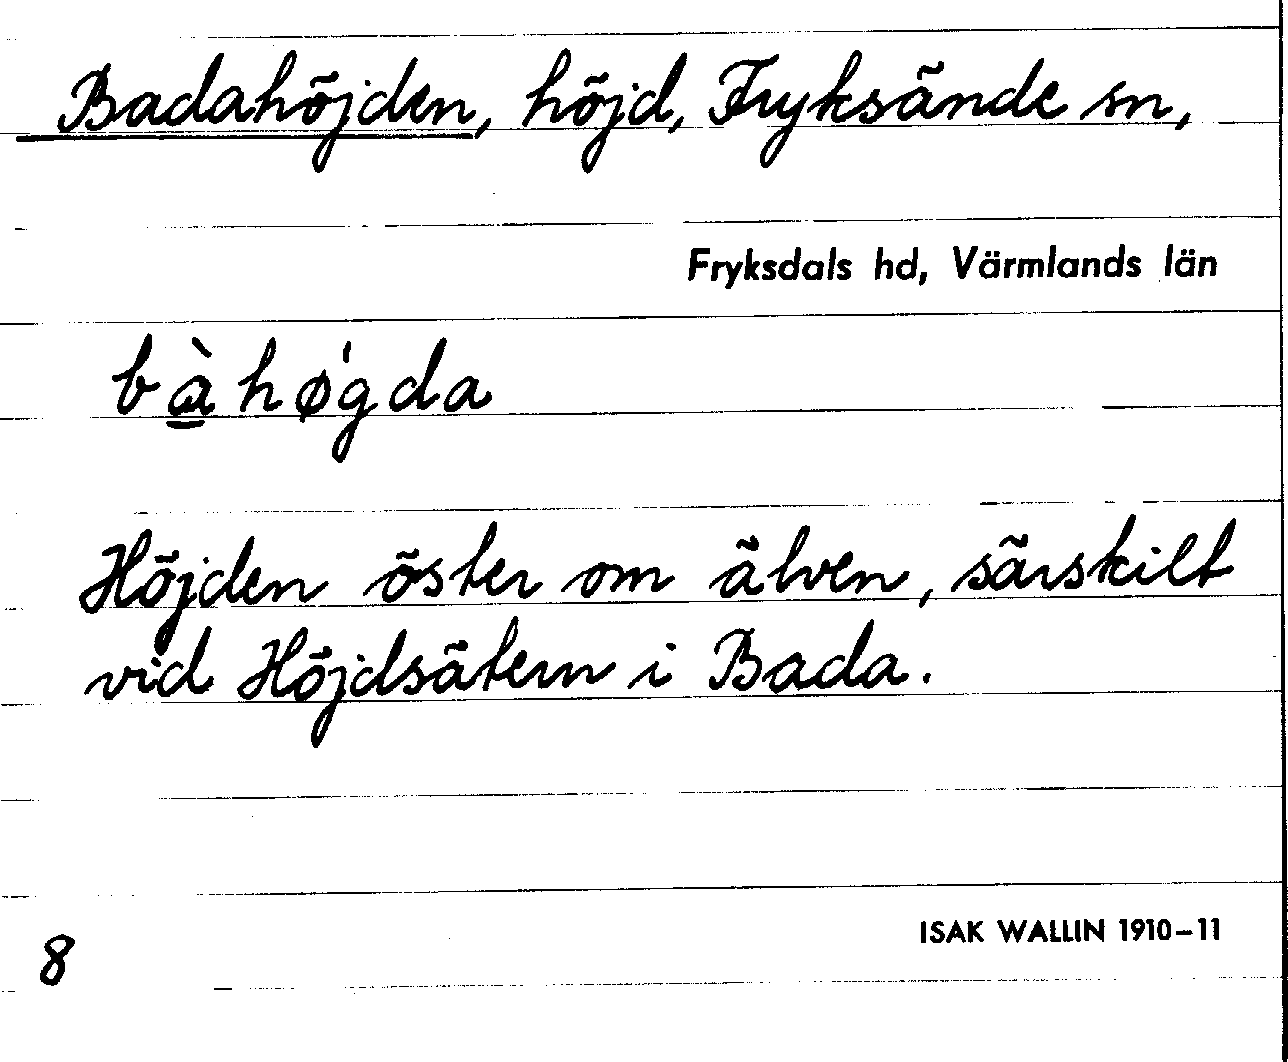 Badahöjden, höjd, Fryksände sn,
Fryksdals hd, Värmlands län
bàhø̍gda
Höjden öster om älven, särskilt
vid Höjdsätern i Bada.
8
ISAK WALLIN 1910-11